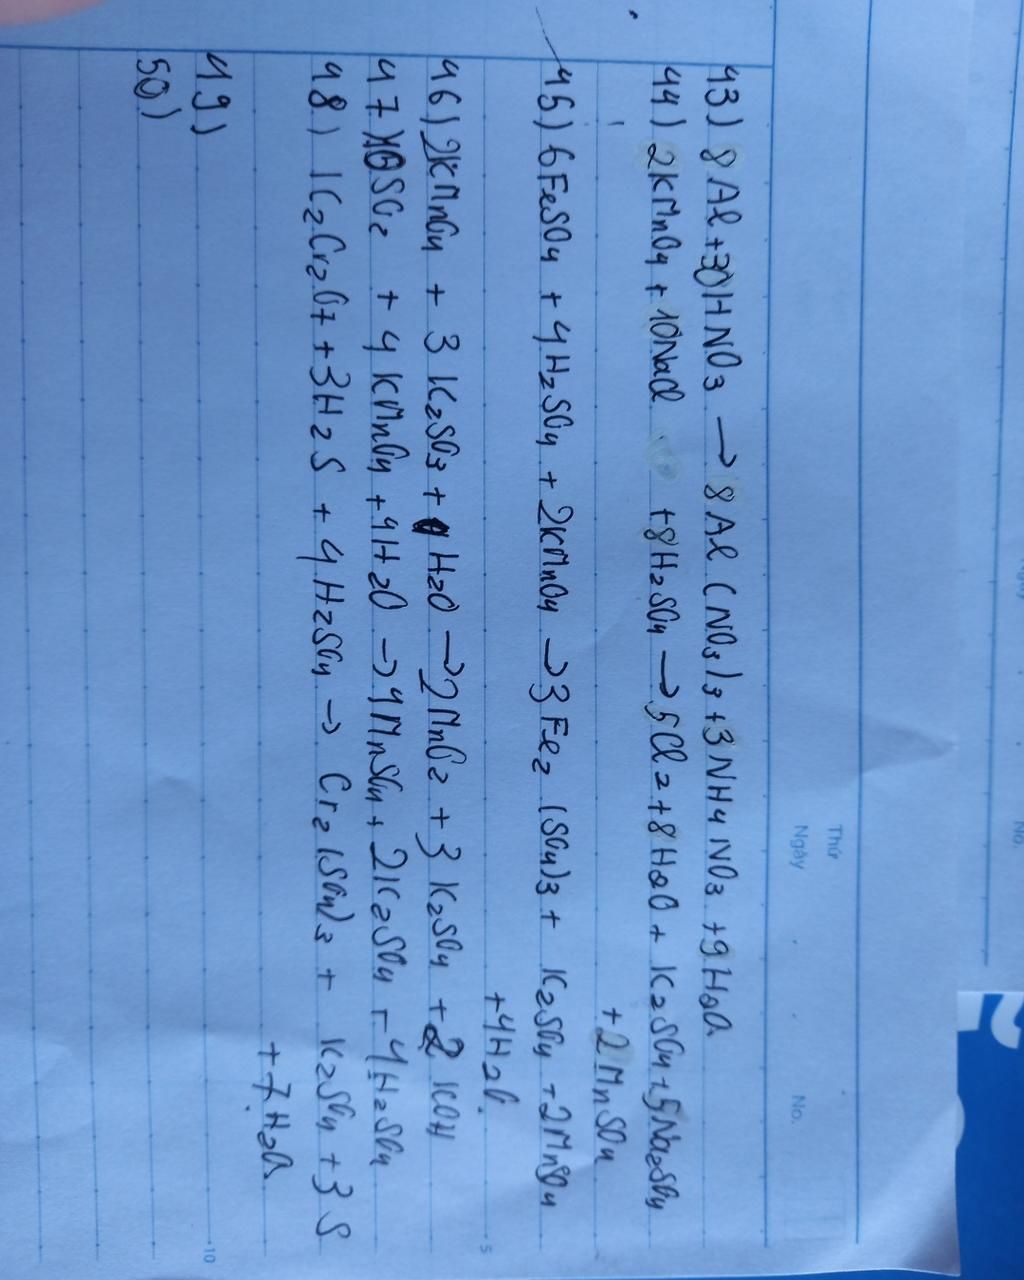 Thứ
Ngày
No.
43) 8Al + 30HNO3 → 8Al(NO3)3 + 3NH4NO3 + 9H2O
44) 2KMnO4 + 10NaCl + 8H2SO4 → 5Cl2 + 8H2O + K2SO4 + 5Na2SO4
+ 2MnSO4
45) 6FeSO4 + 4H2SO4 + 2KMnO4 → 3Fe2(SO4)3 + K2SO4 + 2MnSO4
+ 4H2O.
5
46) 2KMnO4 + 3K2SO3 + H2O → 2MnO2 + 3K2SO4 + 2KOH
47) 10SO2 + 4KMnO4 + 4H2O → 4MnSO4 + 2K2SO4 + 4H2SO4
48) K2Cr2O7 + 3H2S + 4H2SO4 → Cr2(SO4)3 + K2SO4 + 3S
+ 7H2O
49)
10
50)
No.